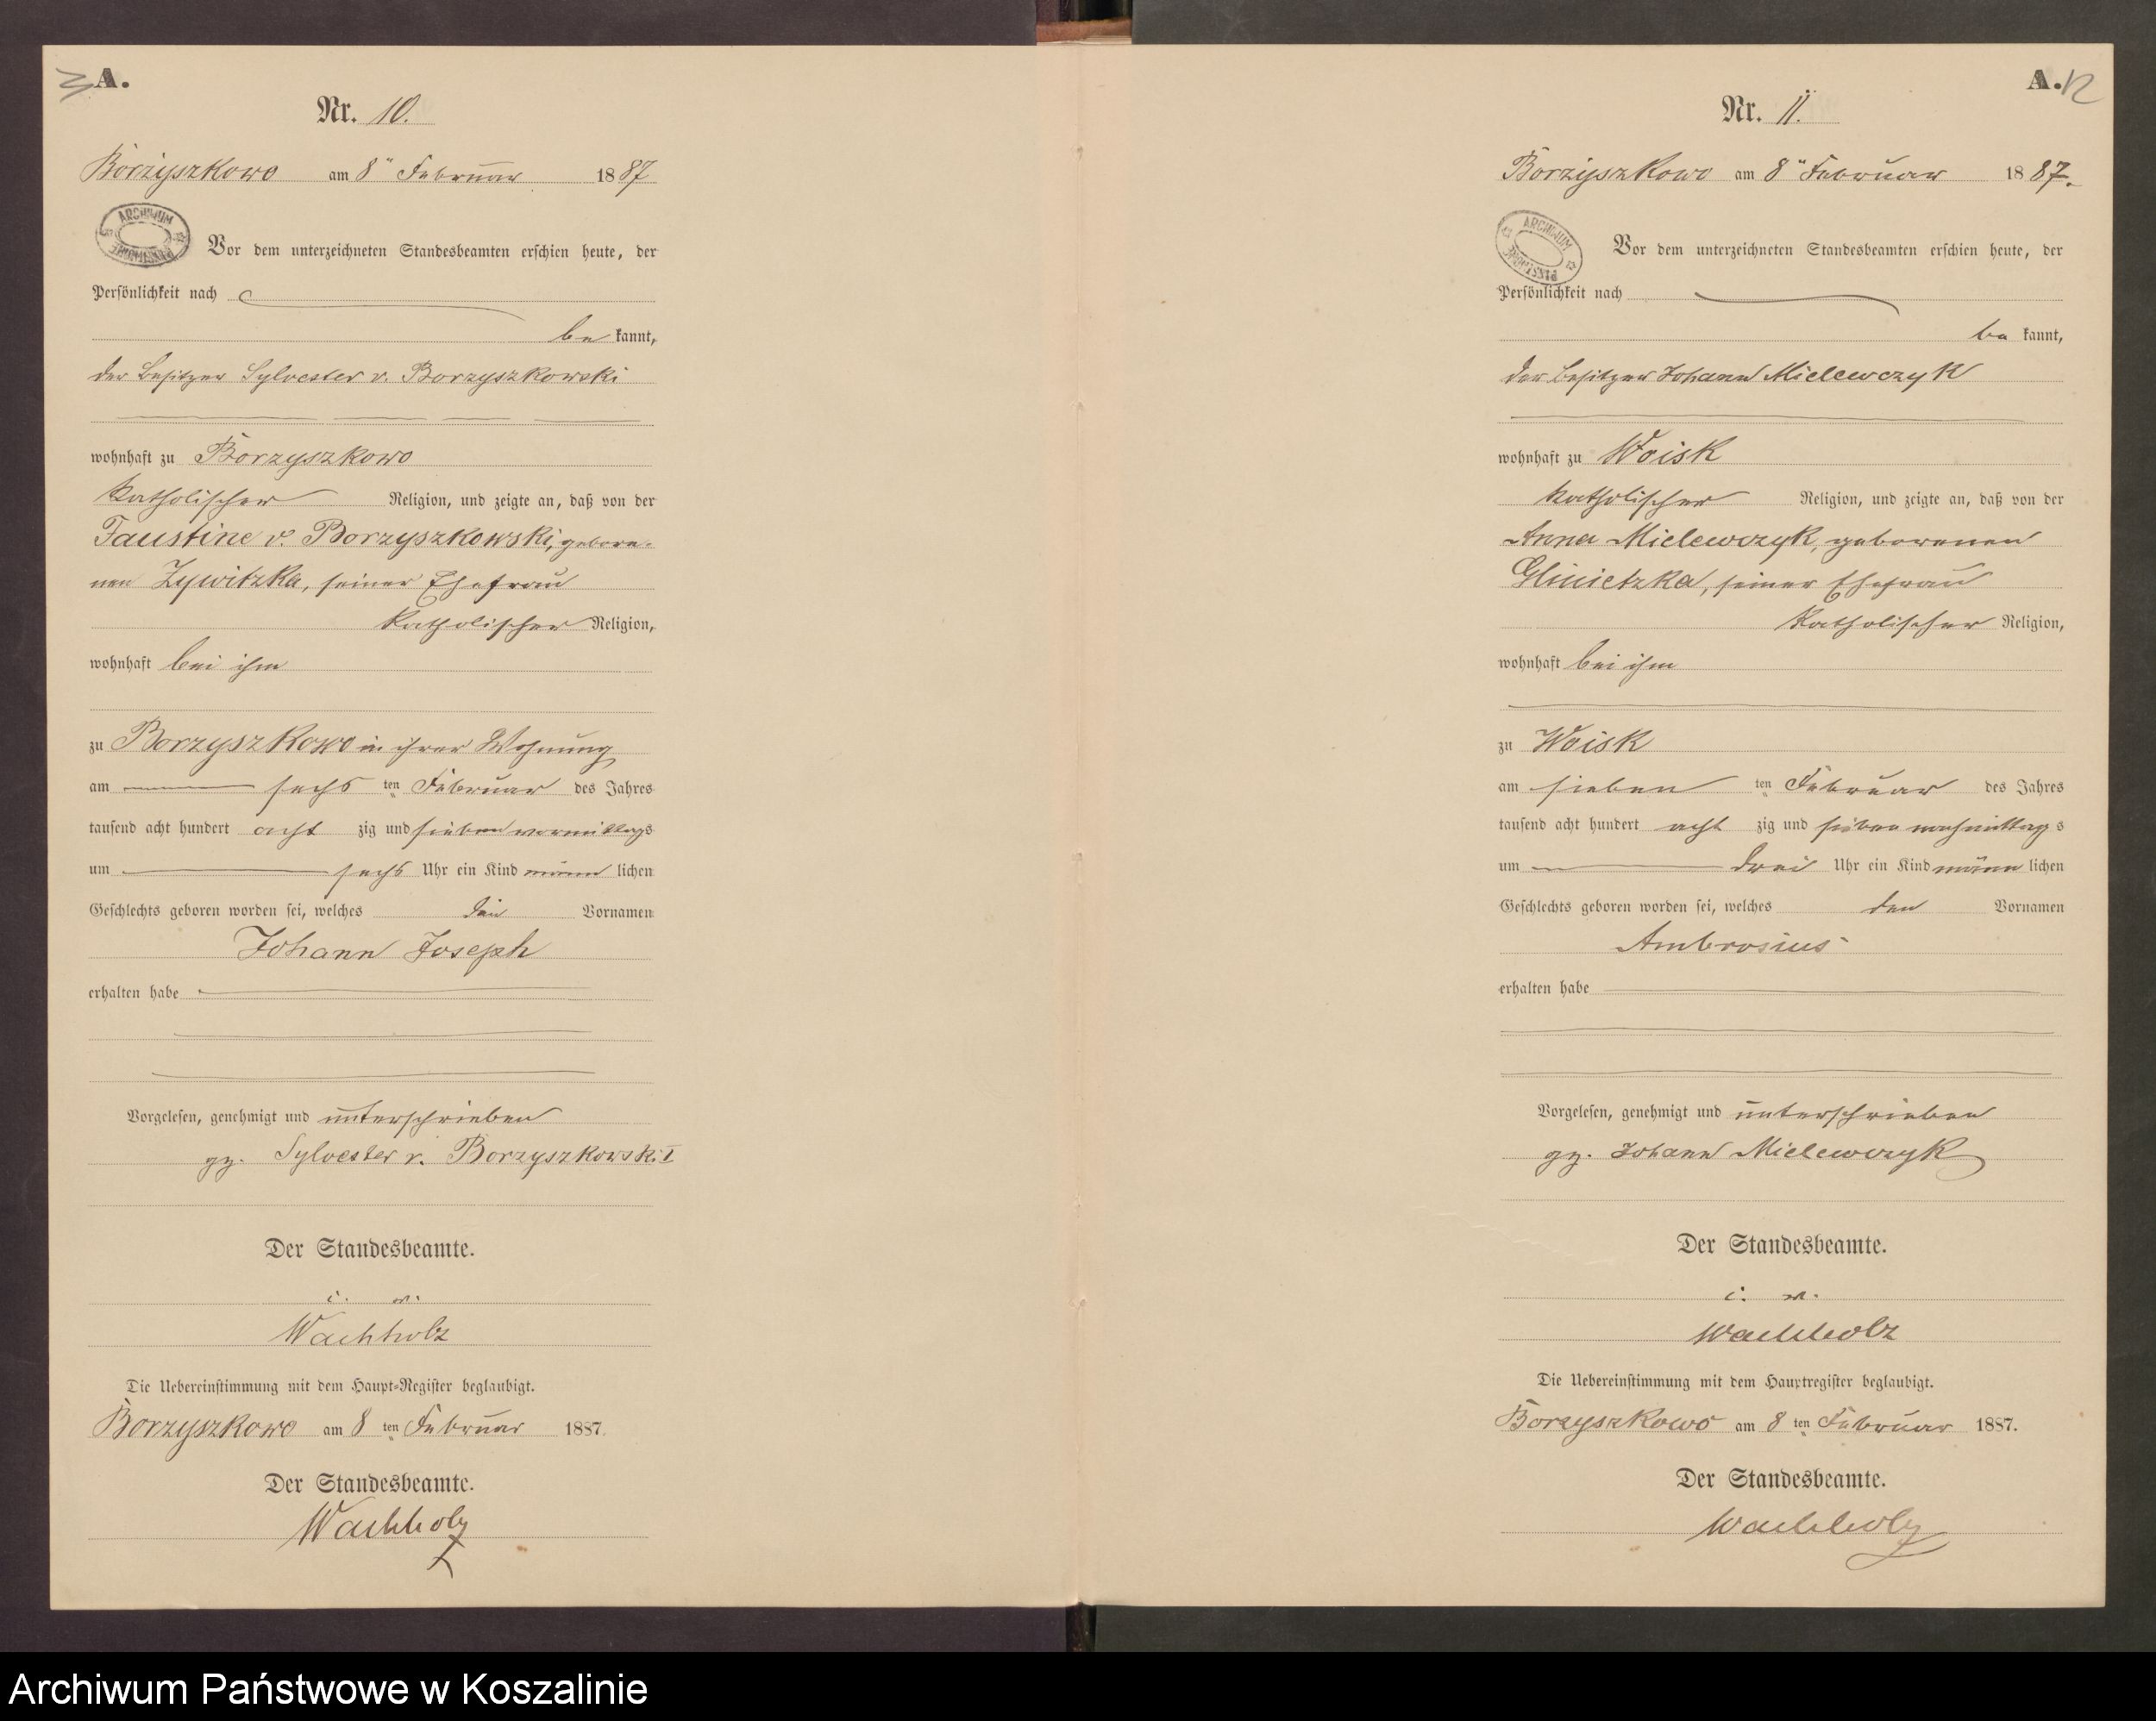 A.
Nr. 10.
Borzyszkowo am 8ᵗ Februar 1887
ARCHIWUM PAŃSTWOWE
Vor dem unterzeichneten Standesbeamten erschien heute, der
Persönlichkeit nach
be kannt,
der Besitzer Sylvester v. Borzyszkowski
wohnhaft zu Borzyszkowo
katholischer Religion, und zeigte an, daß von der
Faustine v. Borzyszkowski, gebore-
nen Zywitzka, seiner Ehefrau
katholischer Religion,
wohnhaft bei ihm
zu Borzyszkowo in ihrer Wohnung
am sechs ten Februar des Jahres
tausend acht hundert acht zig und sieben vormittags
um sechs Uhr ein Kind männ lichen
Geschlechts geboren worden sei, welches die Vornamen
Johann Joseph
erhalten habe
Vorgelesen, genehmigt und unterschrieben
gz. Sylvester v. Borzyszkowski I
Der Standesbeamte.
i. v.
Wachholz
Die Uebereinstimmung mit dem Haupt-Register beglaubigt.
Borzyszkowo am 8 ten Februar 1887.
Der Standesbeamte.
Wachholz
A. 12
Nr. 11.
Borzyszkowo am 8ᵗ Februar 1887.
ARCHIWUM PAŃSTWOWE
Vor dem unterzeichneten Standesbeamten erschien heute, der
Persönlichkeit nach
be kannt,
der Besitzer Johann Mielewczyk
wohnhaft zu Woisk
katholischer Religion, und zeigte an, daß von der
Anna Mielewczyk, geborenen
Glinietzka, seiner Ehefrau
katholischer Religion,
wohnhaft bei ihm
zu Woisk
am sieben ten Februar des Jahres
tausend acht hundert acht zig und sieben nachmittag s
um drei Uhr ein Kind männ lichen
Geschlechts geboren worden sei, welches den Vornamen
Ambrosius
erhalten habe
Vorgelesen, genehmigt und unterschrieben
gz. Johann Mielewczyk
Der Standesbeamte.
i. v.
Wachholz
Die Uebereinstimmung mit dem Hauptregister beglaubigt.
Borzyszkowo am 8 ten Februar 1887.
Der Standesbeamte.
Wachholz
Archiwum Państwowe w Koszalinie